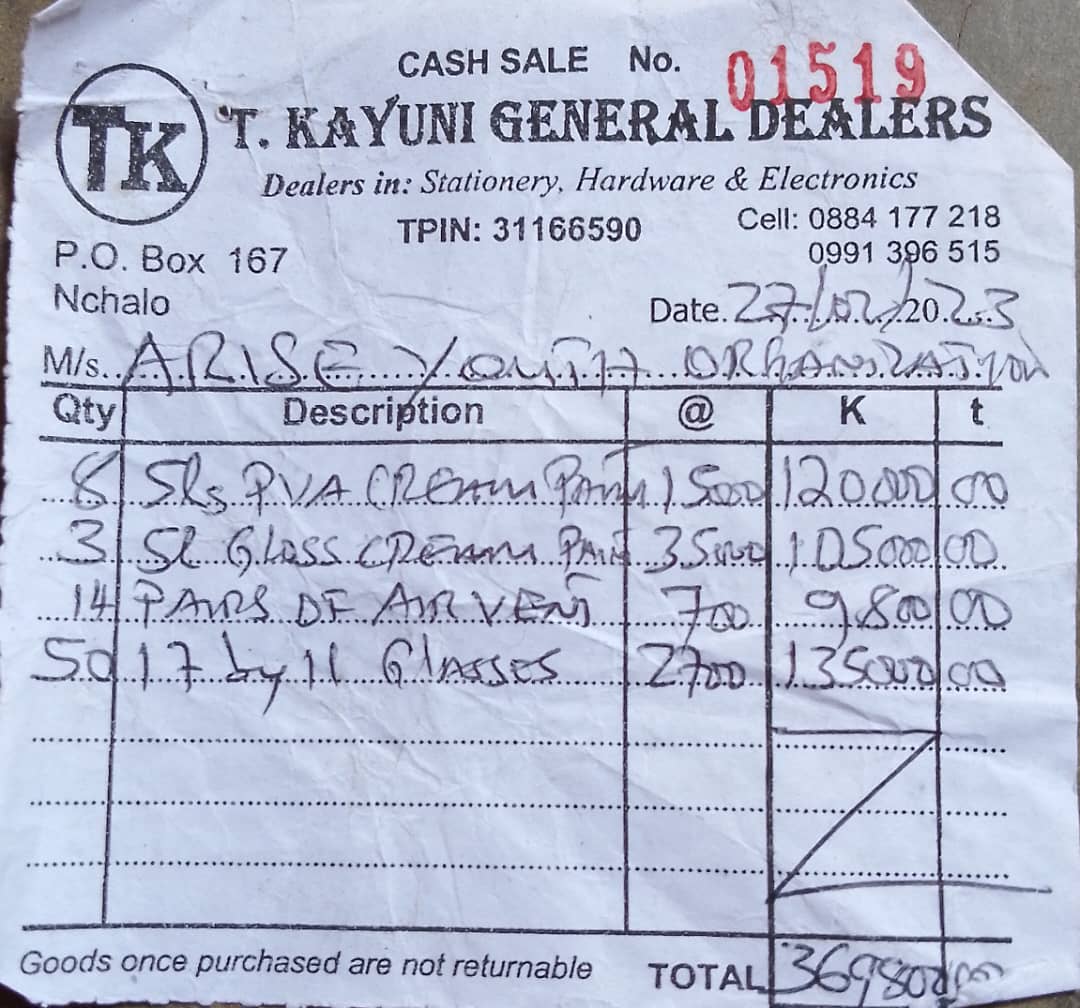 CASH SALE No. 01519
TK T. KAYUNI GENERAL DEALERS
Dealers in: Stationery, Hardware & Electronics
TPIN: 31166590
Cell: 0884 177 218
0991 396 515
P.O. Box 167
Nchalo
Date. 27/02/2023
M/s. ARISE YOUTH ORGANIZATION
Qty Description @ K t
8 5Ls PVA CREAM PAINT 15000 120000 00
3 5L GLOSS CREAM PAINT 35000 105000 00
14 PAIRS OF AIR VENT 700 9800 00
50 17 by 11 GLASSES 2700 135000 00
Goods once purchased are not returnable
TOTAL 369800 00